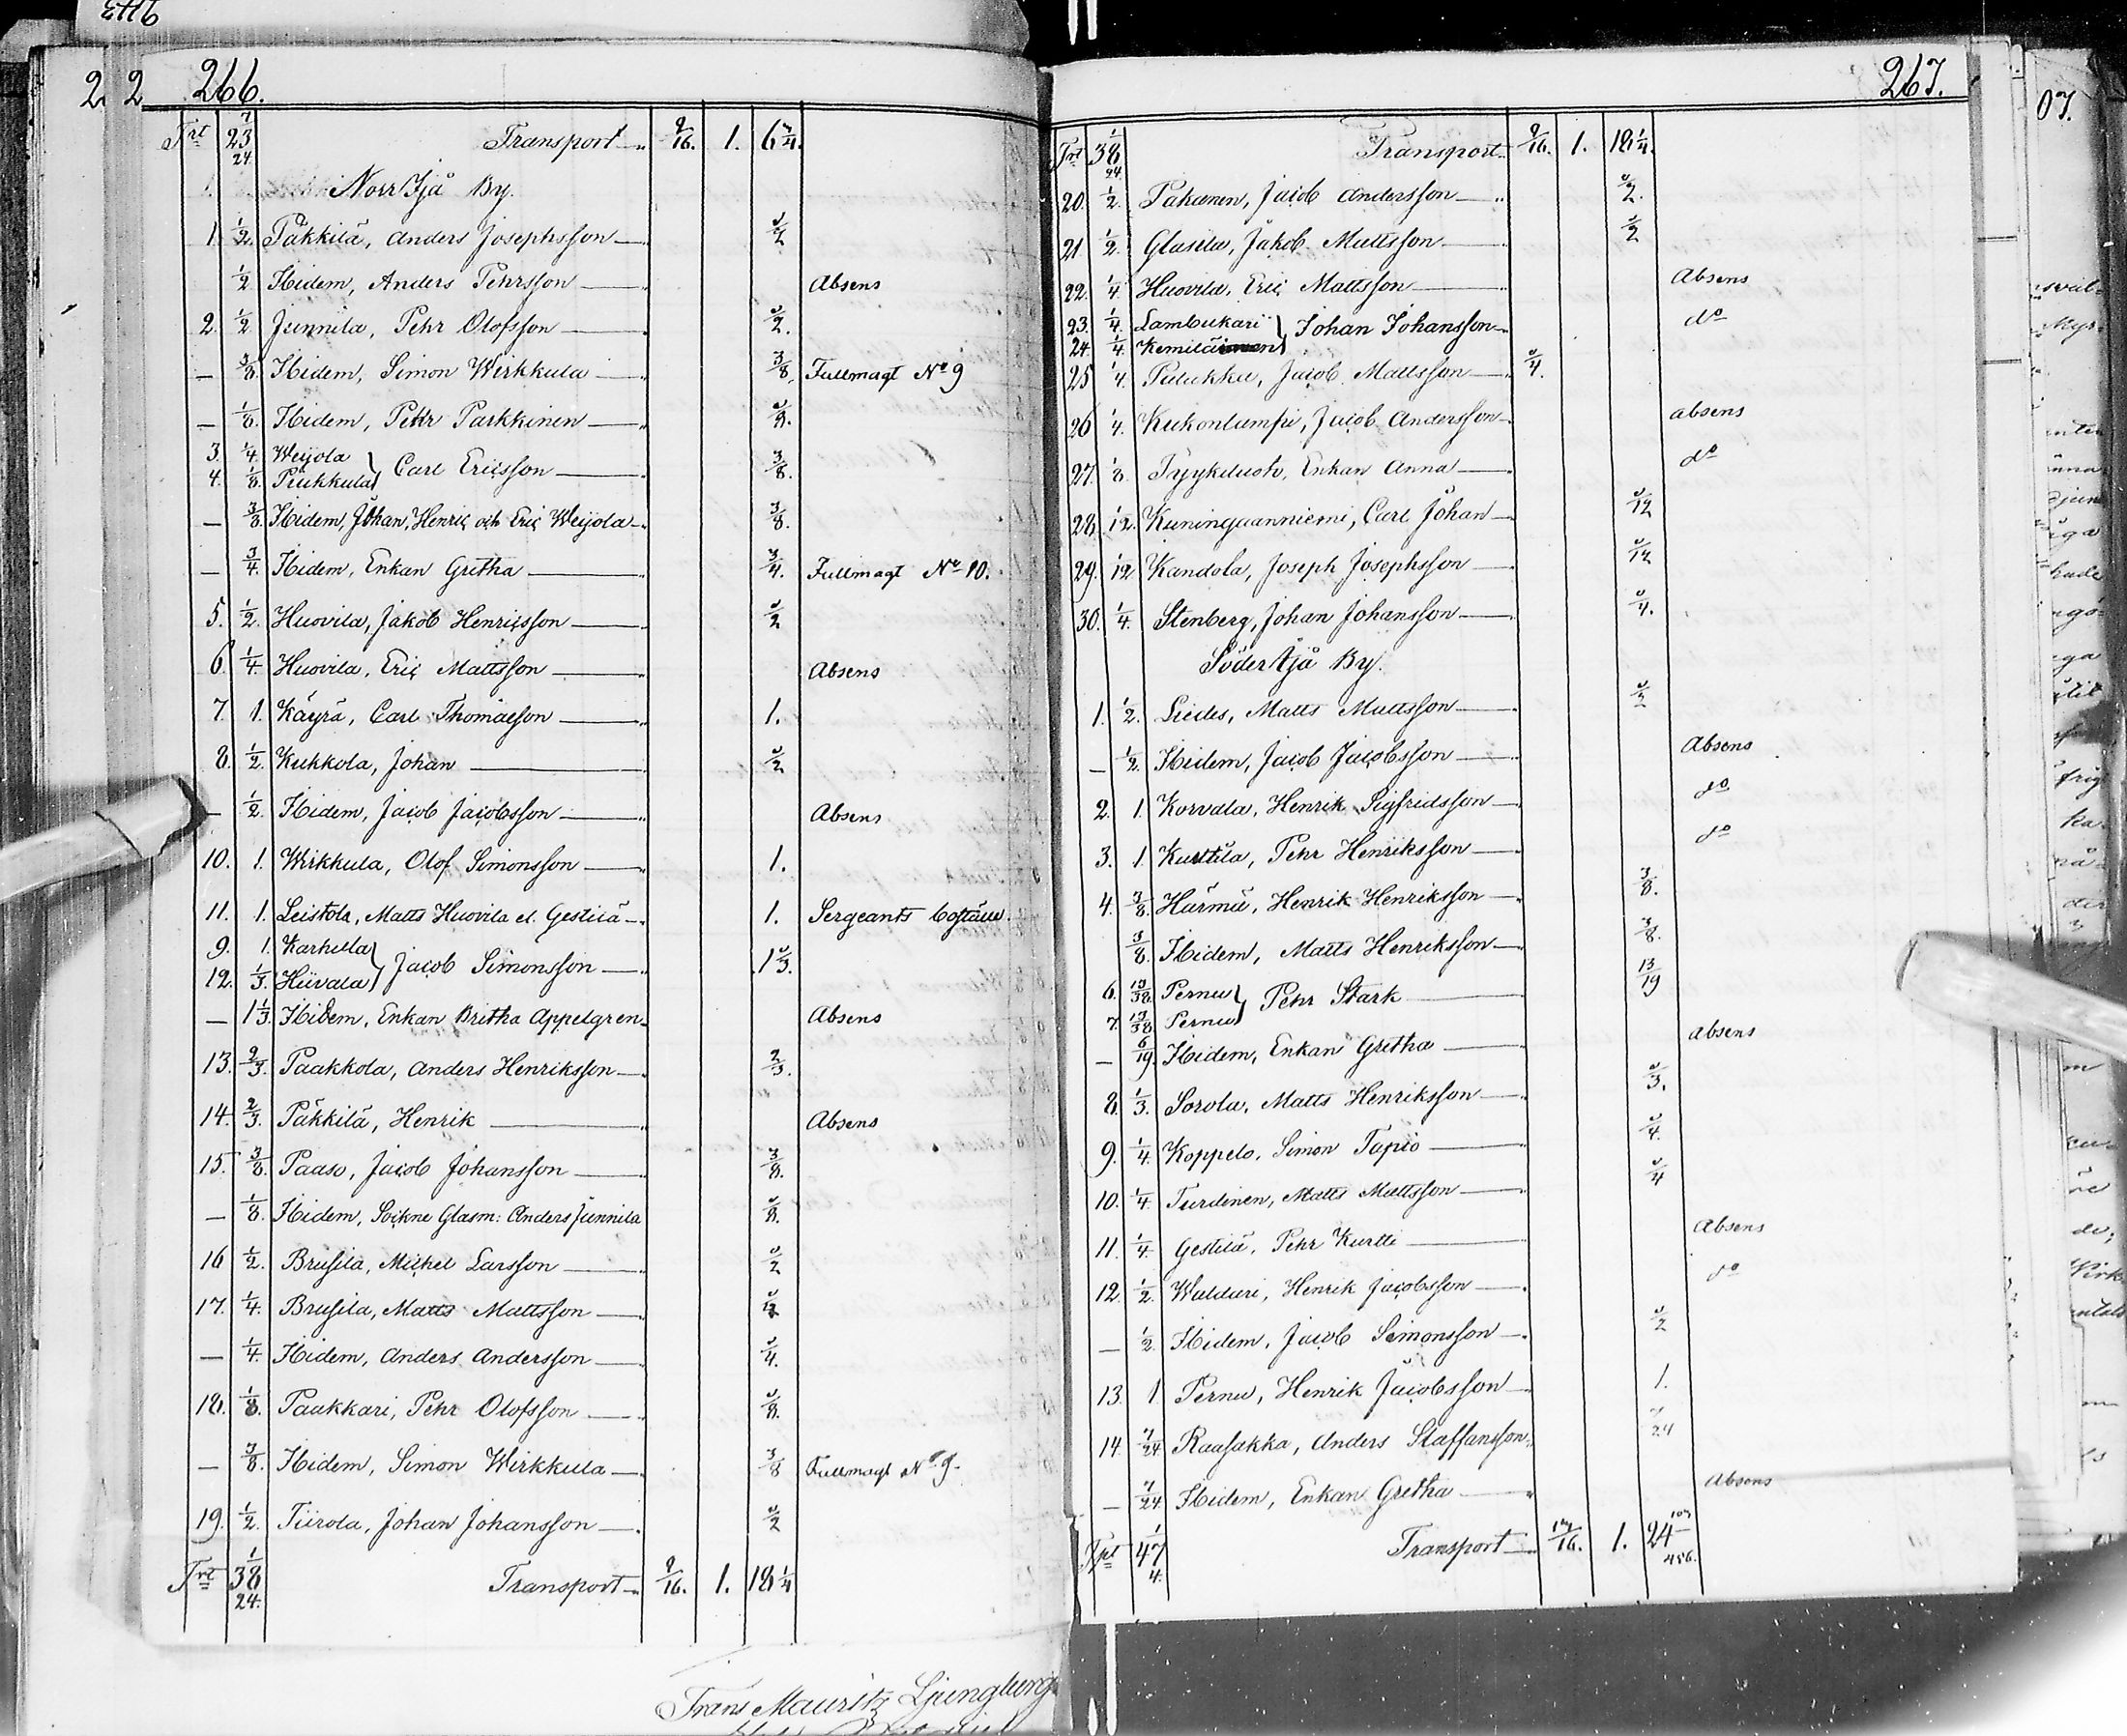 266.
Trt 23 7/24 Transport 9/16. 1. 6 3/4.
Norr Ijå By.
1. 1/2. Påkkilä, Anders Josephsson 1/2
1/2 Ibidem, Anders Pehrsson Absens
2. 1/2 Junnila, Pehr Olofsson 1/2.
— 3/8. Ibidem, Simon Wirkkula 3/8. Fullmagt No 9
— 1/8. Ibidem, Pehr Parkkinen 1/8.
3. 1/4. Weijola } Carl Ericsson 3/8.
4. 1/8. Puikkula
— 3/8. Ibidem, Johan, Henric och Eric Weijola 3/8.
— 3/4. Ibidem, Enkan Gretha 3/4. Fullmagt No 10.
5. 1/2. Huovila, Jakob Henricsson 1/2
6. 1/4. Huovila, Eric Mattsson Absens
7. 1. Käyrä, Carl Thomaeson 1.
8. 1/2. Kukkola, Johan 1/2
— 1/2. Ibidem, Jacob Jacobsson Absens
10. 1. Wirkkula, Olof Simonsson 1.
11. 1. Leistola, Matts Huovila el. Gestilä 1. Sergeants boställe.
9. 1. Karhula } Jacob Simonsson 1 1/3.
12. 1/3. Hiivala
— 1 1/3. Ibidem, Enkan Britha Appelgren Absens
13. 2/3. Paakkola, Anders Henriksson 2/3.
14. 2/3. Påkkilä, Henrik Absens
15. 3/8. Paaso, Jacob Johansson 3/8.
— 1/8. Ibidem, Sockne Glasm: Anders Junnila 1/8.
16 1/2. Brusila, Michel Larsson 1/2
17. 1/4. Brusila, Matts Mattsson
— 1/4. Ibidem, Anders Andersson 1/4.
18. 1/8. Paakkari, Pehr Olofsson 1/8.
— 3/8. Ibidem, Simon Wirkkula 3/8 Fullmagt No 9.
19. 1/2. Tiirola, Johan Johansson 1/2
Trt 38 1/24. Transport 9/16. 1. 18 1/4
Frans Mauritz Ljungberg
267.
Trt 38 1/24 Transport 9/16. 1. 18 1/4.
20. 1/2. Pakanen, Jacob Andersson 1/2.
21. 1/2. Glasila, Jakob Mattsson 1/2
22. 1/4. Huovila, Eric Mattsson Absens
23. 1/4. Lambukari } Johan Johansson do
24. 1/4. Kemilä
25 1/4. Pulukka, Jacob Mattsson 1/4.
26 1/4. Kukonlumpi, Jacob Andersson absens
27. 1/8. Enkan Anna do
28. 1/12. Kuningaanniemi, Carl Johan 1/12
29. 1/12 Kandola, Joseph Josephsson 1/12
30. 1/4. Stenberg, Johan Johansson 1/4.
Söder Ijå By.
1. 1/2. Liedes, Matts Mattsson 1/2
— 1/2. Ibidem, Jacob Jacobsson Absens
2. 1. Korvala, Henrik Sigfridsson do
3. 1. Kurttila, Pehr Henriksson do
4. 3/8. Härmä, Henrik Henriksson 3/8.
3/8. Ibidem, Matts Henriksson 3/8.
6. 13/38. Pernu } Pehr Stark 13/19
7. 13/38 Pernu
— 6/19. Ibidem, Enkan Gretha Absens
8. 1/3. Sorola, Matts Henriksson 1/3.
9. 1/4. Koppelo, Simon Tapio 1/4.
10. 1/4. Turdinen, Matts Mattsson 1/4
11. 1/4 Gestilä, Pehr Kurtti Absens
12. 1/2. Waldari, Henrik Jacobsson do
— 1/2 Ibidem, Jacob Simonsson 1/2
13. 1 Pernu, Henrik Jacobsson 1.
14. 7/24 Raasakka, Anders Staffansson 7/24
— 7/24. Ibidem, Enkan Gretha Absens
47 1/4. Transport 1. 24